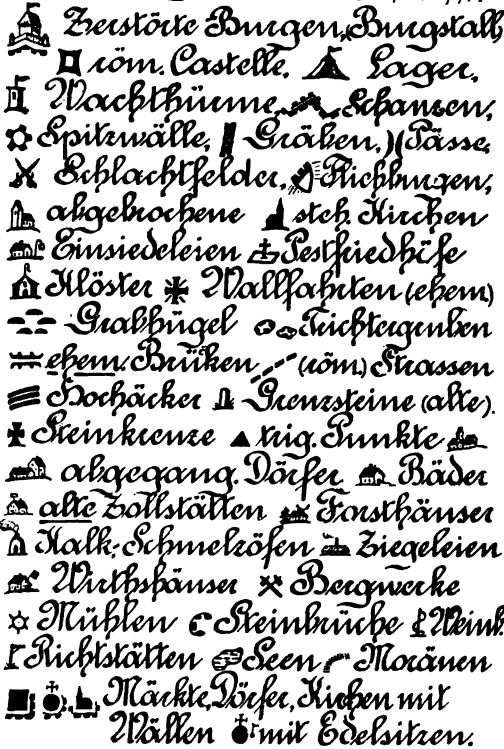 Zerstörte Burgen, Burgstall,
röm. Castelle, Lager,
Wachthürme, Schanzen,
Spitzwälle, Gräben, Pässe,
Schlachtfelder, Fliehburgen,
abgebrochene steh. Kirchen
Einsiedeleien Pestfriedhöfe
Klöster Wallfahrten (ehem)
Grabhügel Trichtergruben
ehem. Brüken (röm.) Strassen
Hochäcker Grenzsteine (alte).
Steinkreuze trig. Punkte
abgegang. Dörfer Bäder
alte Zollstätten Forsthäuser
Kalk- Schmelzöfen Ziegeleien
Wirthshäuser Bergwerke
Mühlen Steinbrüche Weinb.
Richtstätten Seen Moränen
Märkte, Dörfer, Kirchen mit
Wällen mit Edelsitzen.